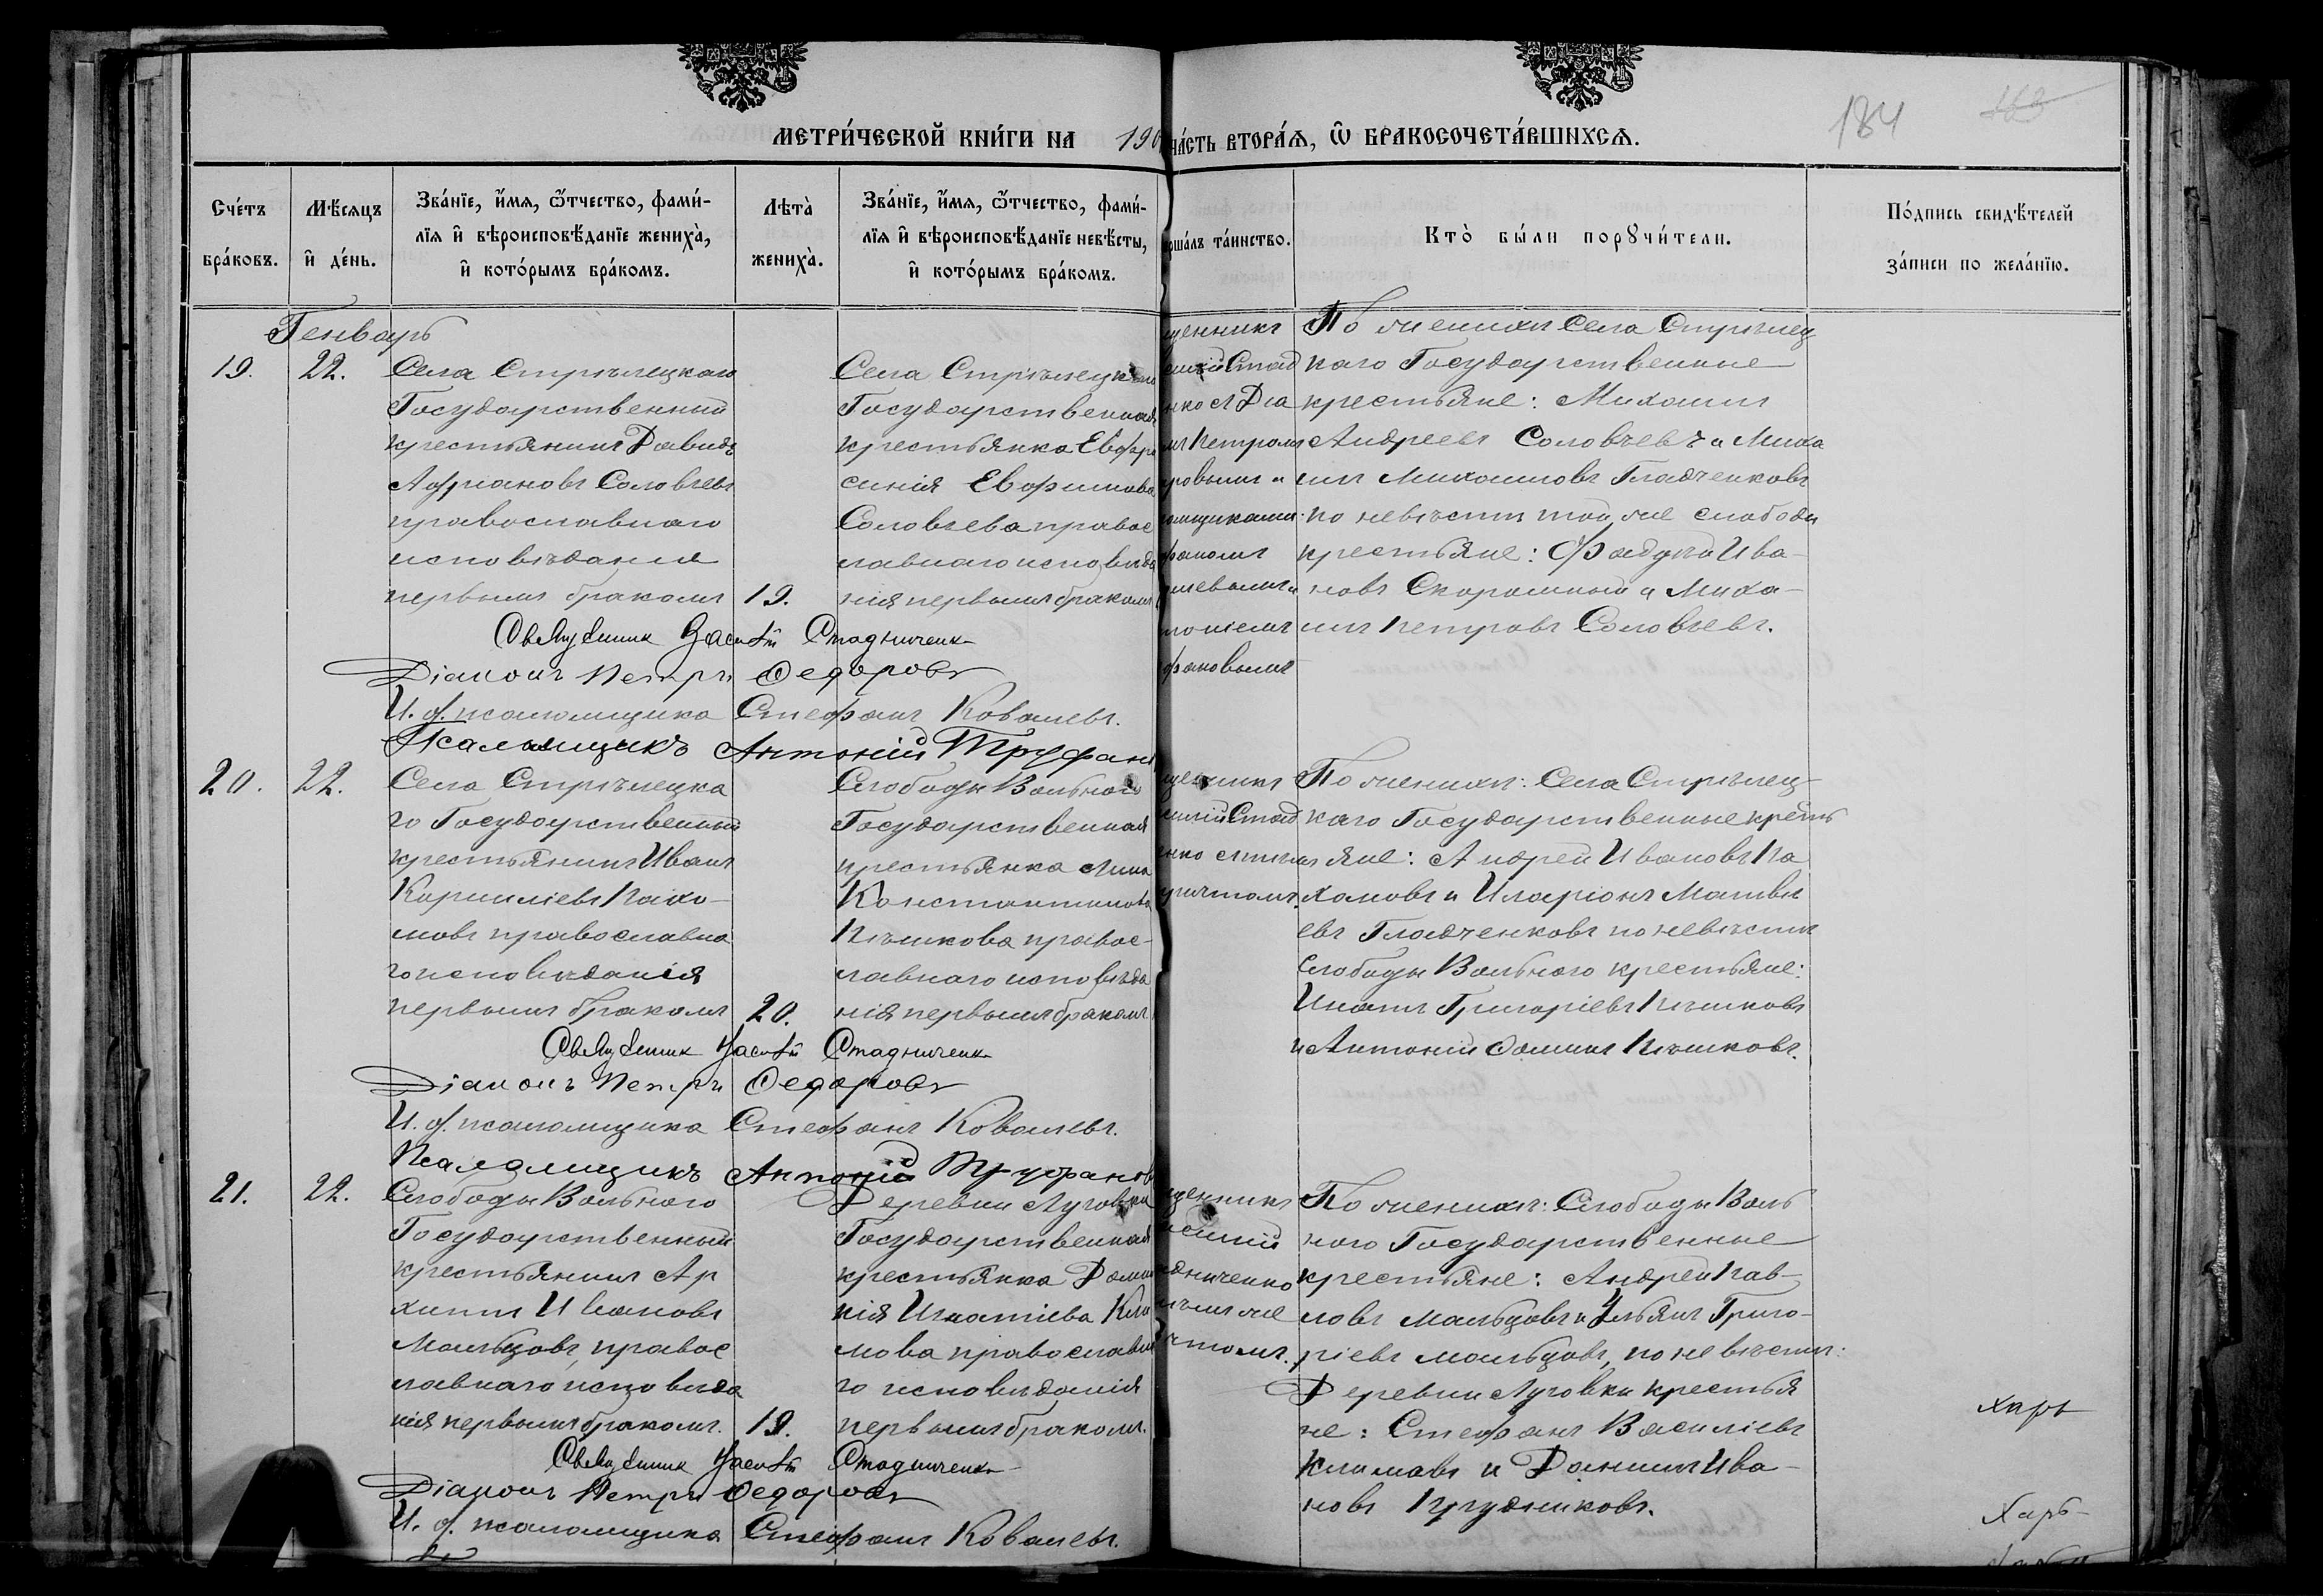 МЕТРИ́ЧЕСКОЙ КНИ́ГИ НА 190
ЧА́СТЬ ВТОРА́Ѧ, Ѽ БРАКОСОЧЕТА́ВШИХСѦ.
184
Сче́тъ бра́ковъ.
Мѣ́сяцъ и҆ де́нь.
Зва́нїе, и҆́мя, ѻ҆́тчество, фами́-
лїя и҆ вѣроисповѣ́данїе жениха̀,
и҆ кото́рымъ бра́комъ.
Лѣта̀ жениха̀.
Зва́нїе, и҆́мя, ѻ҆́тчество, фами́-
лїя и҆ вѣроисповѣ́данїе невѣ́сты,
и҆ кото́рымъ бра́комъ.
ерша́лъ та́инство.
Кто̀ бы́ли порꙋчи́тели.
По́дпись свидѣ́телей
за́писи по жела́нїю.
Генварь
19. 22.
Села Стрѣлецкаго
Государственный
крестьянинъ Давидъ
Адріановъ Соловьевъ
православнаго
исповѣданія
первымъ бракомъ
19.
Села Стрѣлецкаго
Государственная
крестьянка Евфро
синія Евфимова
Соловьева правос
лавнаго исповѣда
нія первымъ бракомъ
щенникъ
силій Стад
нко Діа
Петромъ
ровымъ и
омщиками:
фаномъ
алевымъ и
тоніемъ
фановымъ
По женихѣ Села Стрѣлец
каго Государственные
крестьяне: Михаилъ
Андреевъ Соловьевъ и Миха
илъ Михаиловъ Гладченковъ
по невѣстѣ той же слободы
крестьяне: Фаддей Ива-
новъ Скорошный и Миха-
илъ Петровъ Соловьевъ.
Священникъ Василій Стадниченко
Діаконъ Петръ Ѳедоровъ
И. д. псаломщика Стефанъ Ковалевъ.
Псаломщикъ Антоній Труфано
20. 22.
Села Стрѣлецка
го Государственный
крестьянинъ Иванъ
Корниліевъ Пахо-
мовъ православна
го исповѣданія
первымъ бракомъ
20.
Слободы Вольного
Государственная
крестьянка Анна
Константинова
Пѣшкова правос-
лавнаго исповѣда
нія первымъ бракомъ
щенникъ
силій Стад
нко съ тѣмъ
ричтомъ.
По женихѣ: Села Стрѣлец-
каго Государственные кресть
яне: Андрей Ивановъ Па
хомовъ и Иларіонъ Матвѣ
евъ Гладченковъ по невѣстѣ
Слободы Вольного крестьяне:
Игнатъ Григоріевъ Пѣшковъ
и Антоній Ѳоминъ Пѣшковъ.
Священникъ Василій Стадниченко
Діаконъ Петръ Ѳедоровъ
И. д. псаломщика Стефанъ Ковалевъ.
Псаломщикъ Антоній Труфанов
21. 22.
Слободы Вольного
Государственный
крестьянинъ Ар
хипъ Ивановъ
Мальцовъ, правос
лавнаго исповѣда
нія первымъ бракомъ.
19.
Деревни Луговки
Государственная
крестьянка Домни
кія Игнатіева Кли
мова православна
го исповѣданія
первымъ бракомъ.
щенникъ
силій
адниченко
тѣмъ же
чтомъ.
По женихѣ: Слободы Воль
ного Государственные
крестьяне: Андрей Пав-
ловъ Мальцовъ и Ульянъ Григо-
ріевъ Мальцовъ, по невѣстѣ:
Деревни Луговки крестья
не: Стефанъ Василіевъ
Климовъ и Даніилъ Ива-
новъ Прудниковъ.
Священникъ Василій Стадниченко
Діаконъ Петръ Ѳедоровъ
И. д. псаломщика Стефанъ Ковалевъ.